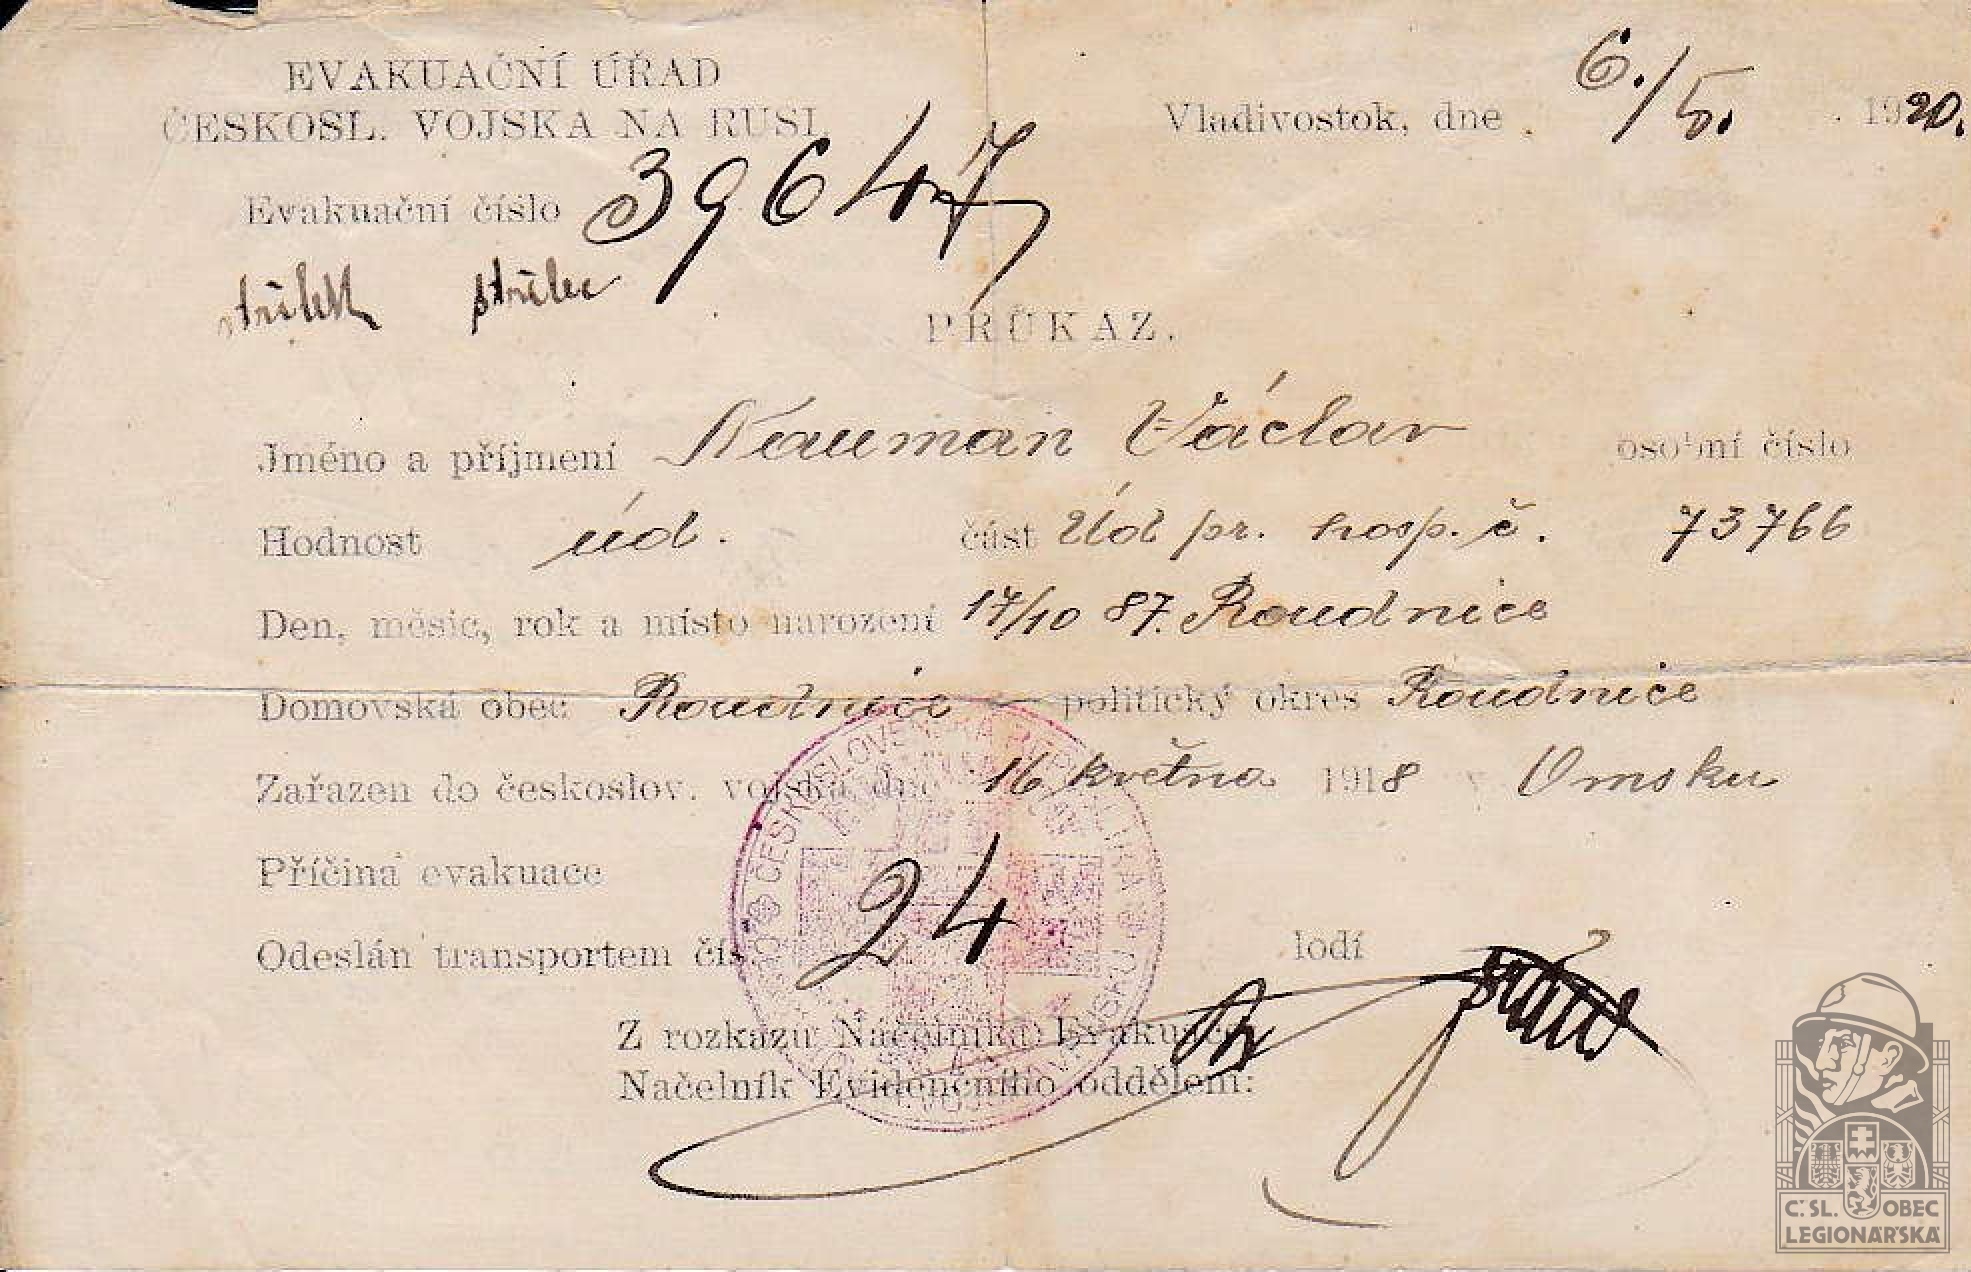 EVAKUAČNÍ ÚŘAD
ČESKOSL. VOJSKA NA RUSI
Vladivostok, dne 6./5. 1920.
Evakuační číslo 39647
střelec
PRŮKAZ.
Jméno a příjmení Nauman Václav osobní číslo
Hodnost úd. část Úd pr. hosp. č. 73766
Den, měsíc, rok a místo narození 17/10 87. Roudnice
Domovská obec Roudnice politický okres Roudnice
Zařazen do českoslov. vojska dne 16 května 1918 v Omsku
Příčina evakuace
Odeslán transportem čís. 24 lodí
Z rozkazu Náčelníka Evakuace
Náčelník Evidenčního oddělení:
ČESKOSLOVENSKÁ REPUBLIKA
Č. SL. OBEC
LEGIONÁŘSKÁ